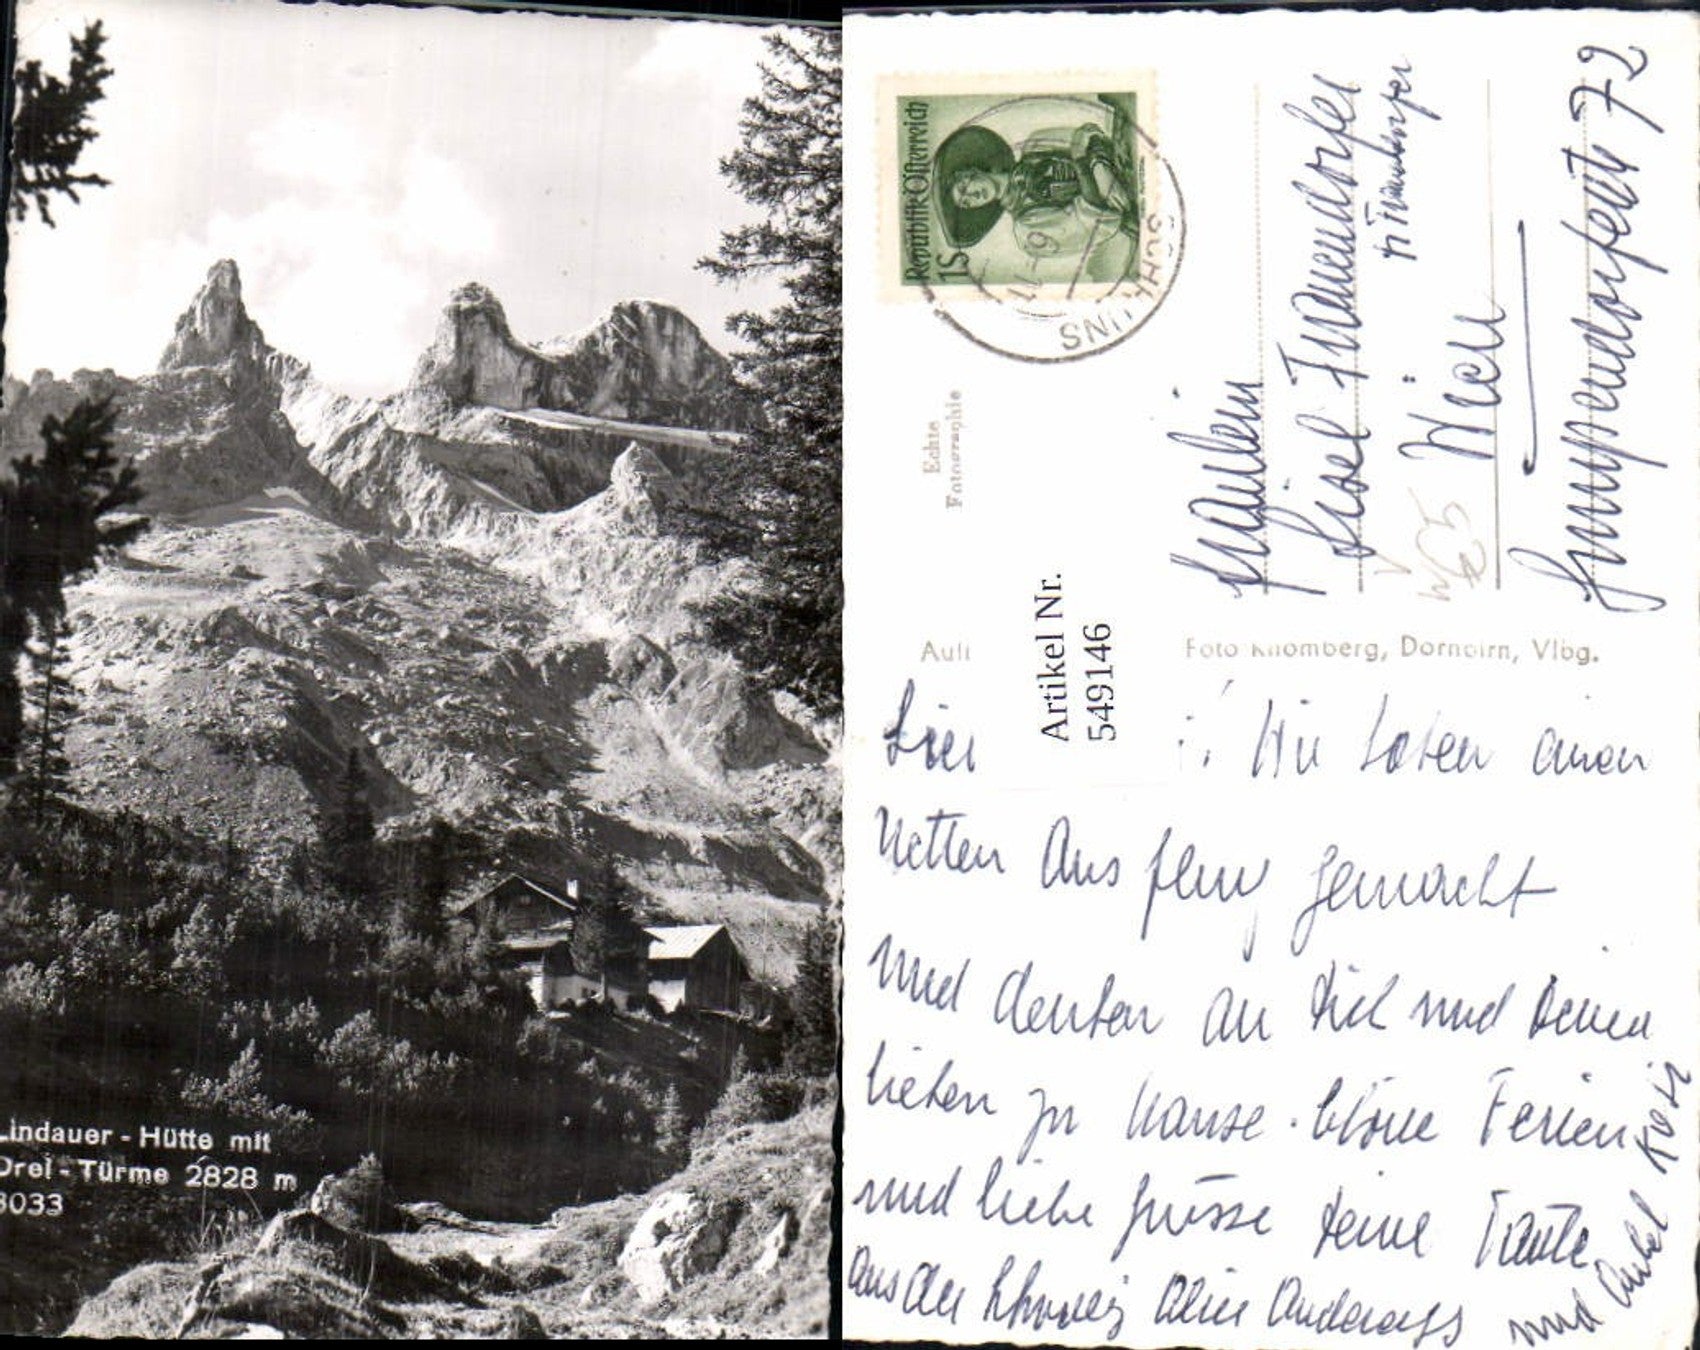 Lindauer - Hütte mit
Drei - Türme 2828 m
3033
Republik Österreich
1S
SCHRUNS
Echte
Fotographie
Artikel Nr.
549146
Foto Rhomberg, Dornbirn, Vlbg.
Fräulein
Lisel
Wien
Gumpendorferstr 72
Wir haben einen
netten Ausflug gemacht
und denken an Dich und Deine
lieben zu Hause. Schöne Ferien
und liebe Grüsse Deine Tante
aus der Schweiz
und Onkel